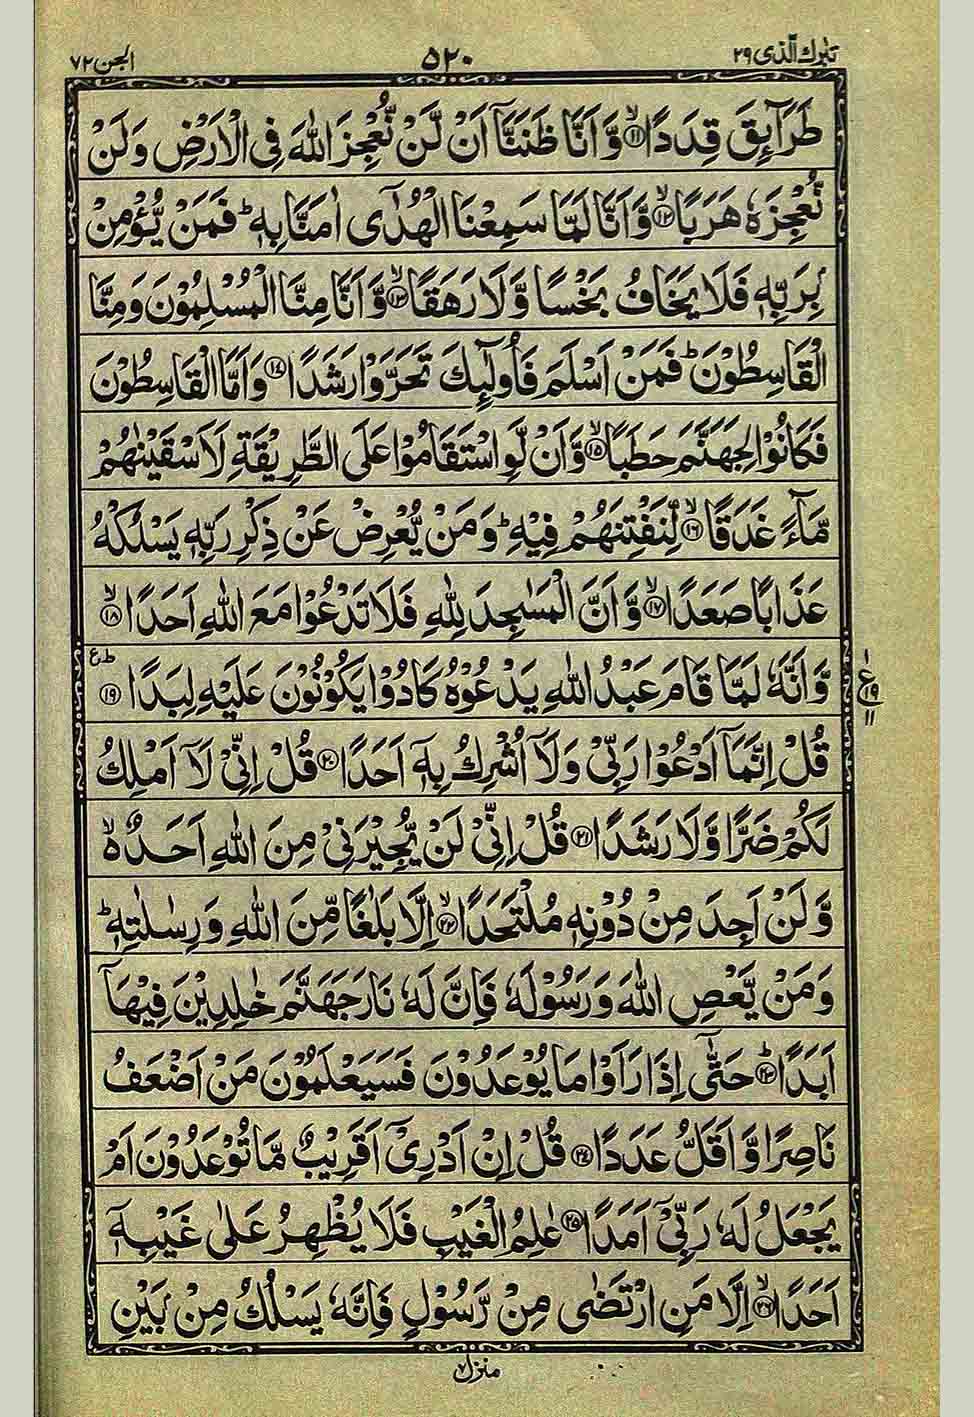 تبٰرك الذی ۲۹
۵۲۰
الجن ۷۲
طَرَآئِقَ قِدَدًا ۙ﴿۱۱﴾ وَّ اَنَّا ظَنَنَّاۤ اَنْ لَّنْ نُّعْجِزَ اللّٰهَ فِی الْاَرْضِ وَ لَنْ
نُّعْجِزَهٗ هَرَبًا ۙ﴿۱۲﴾ وَّ اَنَّا لَمَّا سَمِعْنَا الْهُدٰۤی اٰمَنَّا بِهٖ ؕ فَمَنْ یُّؤْمِنْۢ
بِرَبِّهٖ فَلَا یَخَافُ بَخْسًا وَّ لَا رَهَقًا ۙ﴿۱۳﴾ وَّ اَنَّا مِنَّا الْمُسْلِمُوْنَ وَ مِنَّا
الْقٰسِطُوْنَ ؕ فَمَنْ اَسْلَمَ فَاُولٰٓئِكَ تَحَرَّوْا رَشَدًا ﴿۱۴﴾ وَ اَمَّا الْقٰسِطُوْنَ
فَكَانُوْا لِجَهَنَّمَ حَطَبًا ۙ﴿۱۵﴾ وَّ اَنْ لَّوِ اسْتَقَامُوْا عَلَی الطَّرِیْقَةِ لَاَسْقَیْنٰهُمْ
مَّآءً غَدَقًا ۙ﴿۱۶﴾ لِّنَفْتِنَهُمْ فِیْهِ ؕ وَ مَنْ یُّعْرِضْ عَنْ ذِكْرِ رَبِّهٖ یَسْلُكْهُ
عَذَابًا صَعَدًا ۙ﴿۱۷﴾ وَّ اَنَّ الْمَسٰجِدَ لِلّٰهِ فَلَا تَدْعُوْا مَعَ اللّٰهِ اَحَدًا ۙ﴿۱۸﴾
وَّ اَنَّهٗ لَمَّا قَامَ عَبْدُ اللّٰهِ یَدْعُوْهُ كَادُوْا یَكُوْنُوْنَ عَلَیْهِ لِبَدًا ؕع﴿۱۹﴾
ع ۱۹ ۱۱
قُلْ اِنَّمَاۤ اَدْعُوْا رَبِّیْ وَ لَاۤ اُشْرِكُ بِهٖۤ اَحَدًا ﴿۲۰﴾ قُلْ اِنِّیْ لَاۤ اَمْلِكُ
لَكُمْ ضَرًّا وَّ لَا رَشَدًا ﴿۲۱﴾ قُلْ اِنِّیْ لَنْ یُّجِیْرَنِیْ مِنَ اللّٰهِ اَحَدٌ ۙ۬
وَّ لَنْ اَجِدَ مِنْ دُوْنِهٖ مُلْتَحَدًا ۙ﴿۲۲﴾ اِلَّا بَلٰغًا مِّنَ اللّٰهِ وَ رِسٰلٰتِهٖ ؕ
وَ مَنْ یَّعْصِ اللّٰهَ وَ رَسُوْلَهٗ فَاِنَّ لَهٗ نَارَ جَهَنَّمَ خٰلِدِیْنَ فِیْهَاۤ
اَبَدًا ؕ﴿۲۳﴾ حَتّٰۤی اِذَا رَاَوْا مَا یُوْعَدُوْنَ فَسَیَعْلَمُوْنَ مَنْ اَضْعَفُ
نَاصِرًا وَّ اَقَلُّ عَدَدًا ﴿۲۴﴾ قُلْ اِنْ اَدْرِیْۤ اَقَرِیْبٌ مَّا تُوْعَدُوْنَ اَمْ
یَجْعَلُ لَهٗ رَبِّیْۤ اَمَدًا ﴿۲۵﴾ عٰلِمُ الْغَیْبِ فَلَا یُظْهِرُ عَلٰی غَیْبِهٖۤ
اَحَدًا ۙ﴿۲۶﴾ اِلَّا مَنِ ارْتَضٰی مِنْ رَّسُوْلٍ فَاِنَّهٗ یَسْلُكُ مِنْۢ بَیْنِ
منزل ۷